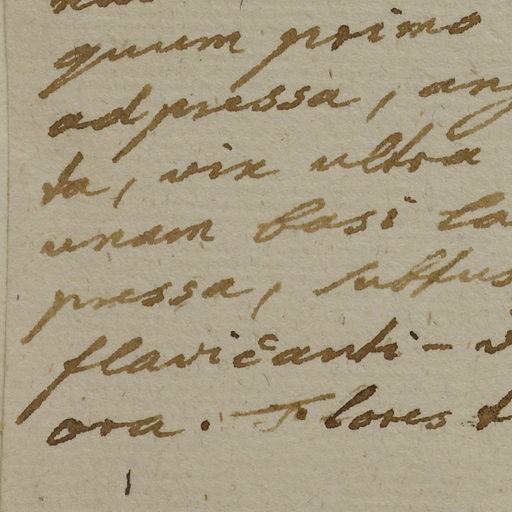 quum primo
adpressa, an
ta, vix ultra
unam basi la
pressa, subfus
flavicanti-v
ora. Flores